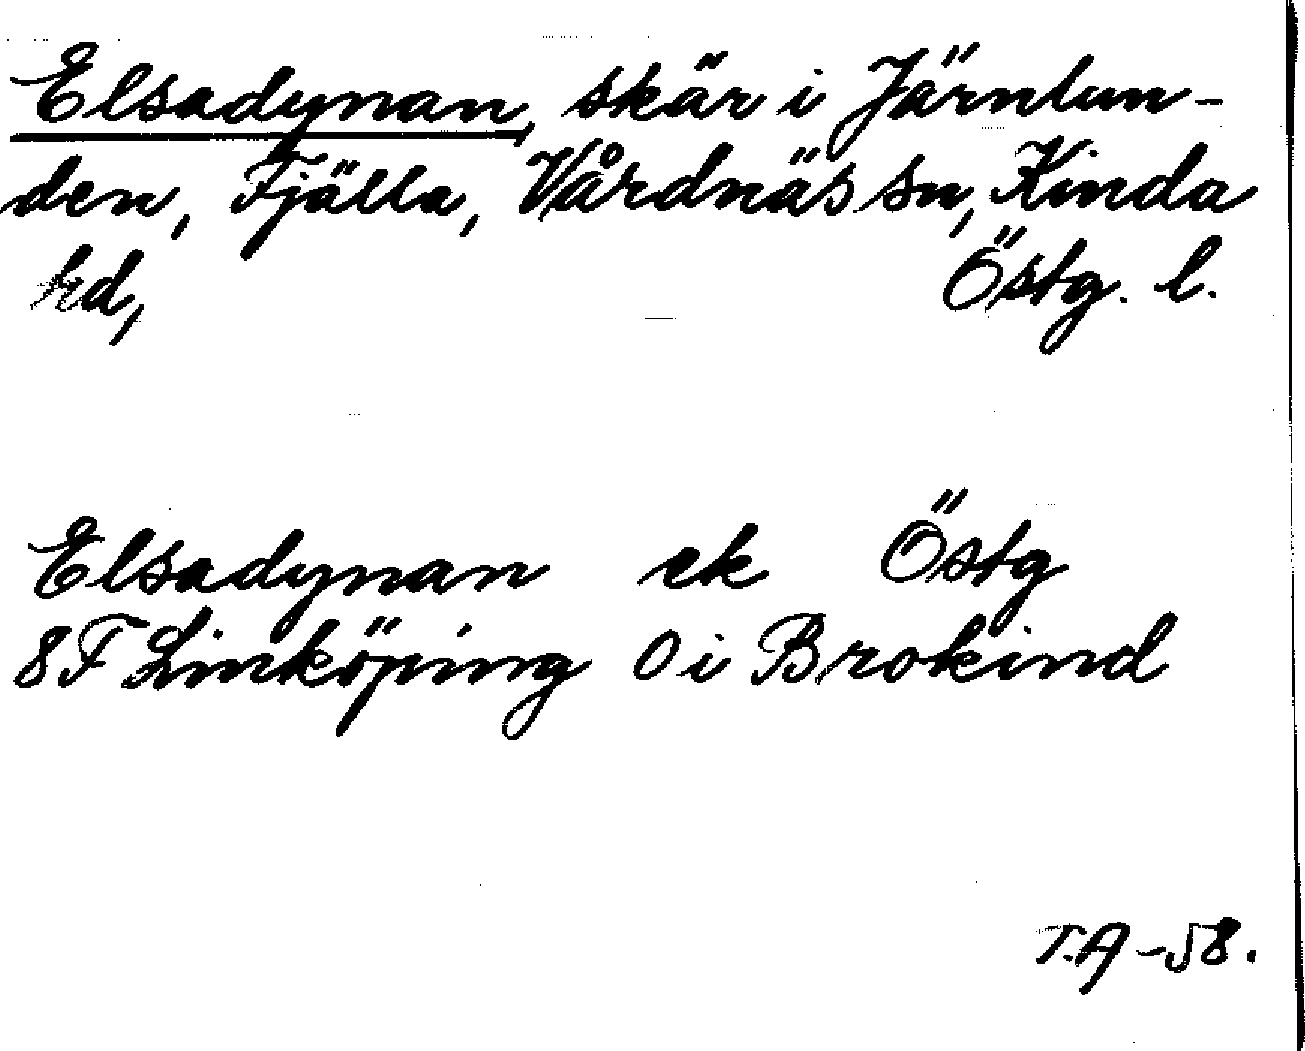 Elsadynan, skär i Järnlun-
den, Fjälla, Vårdnäs sn, Kinda
hd, Östg. l.
Elsadynan ek Östg
8F Linköping O i Brokind
T.A -58.